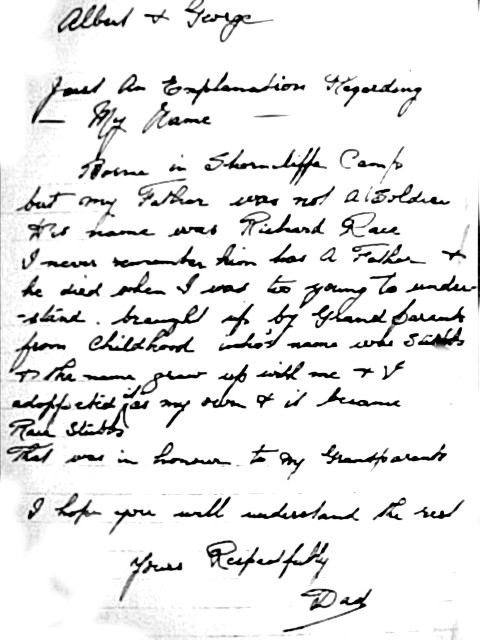 Albert & George
Just An Explanation Regarding
— My Name —
Borne in Shorncliffe Camp
but my Father was not A Soldier
His name was Richard Race
I never remember him has A Father &
he died when I was too young to under-
-stand. brought up by Grandparents
from Childhood who's name was Stubbs
& the name grew up with me & I
adoppeted it as my own & it became
Race Stubbs
That was in honour to my Grandparents
I hope you will understand the rest
Yours Respectfully
Dad